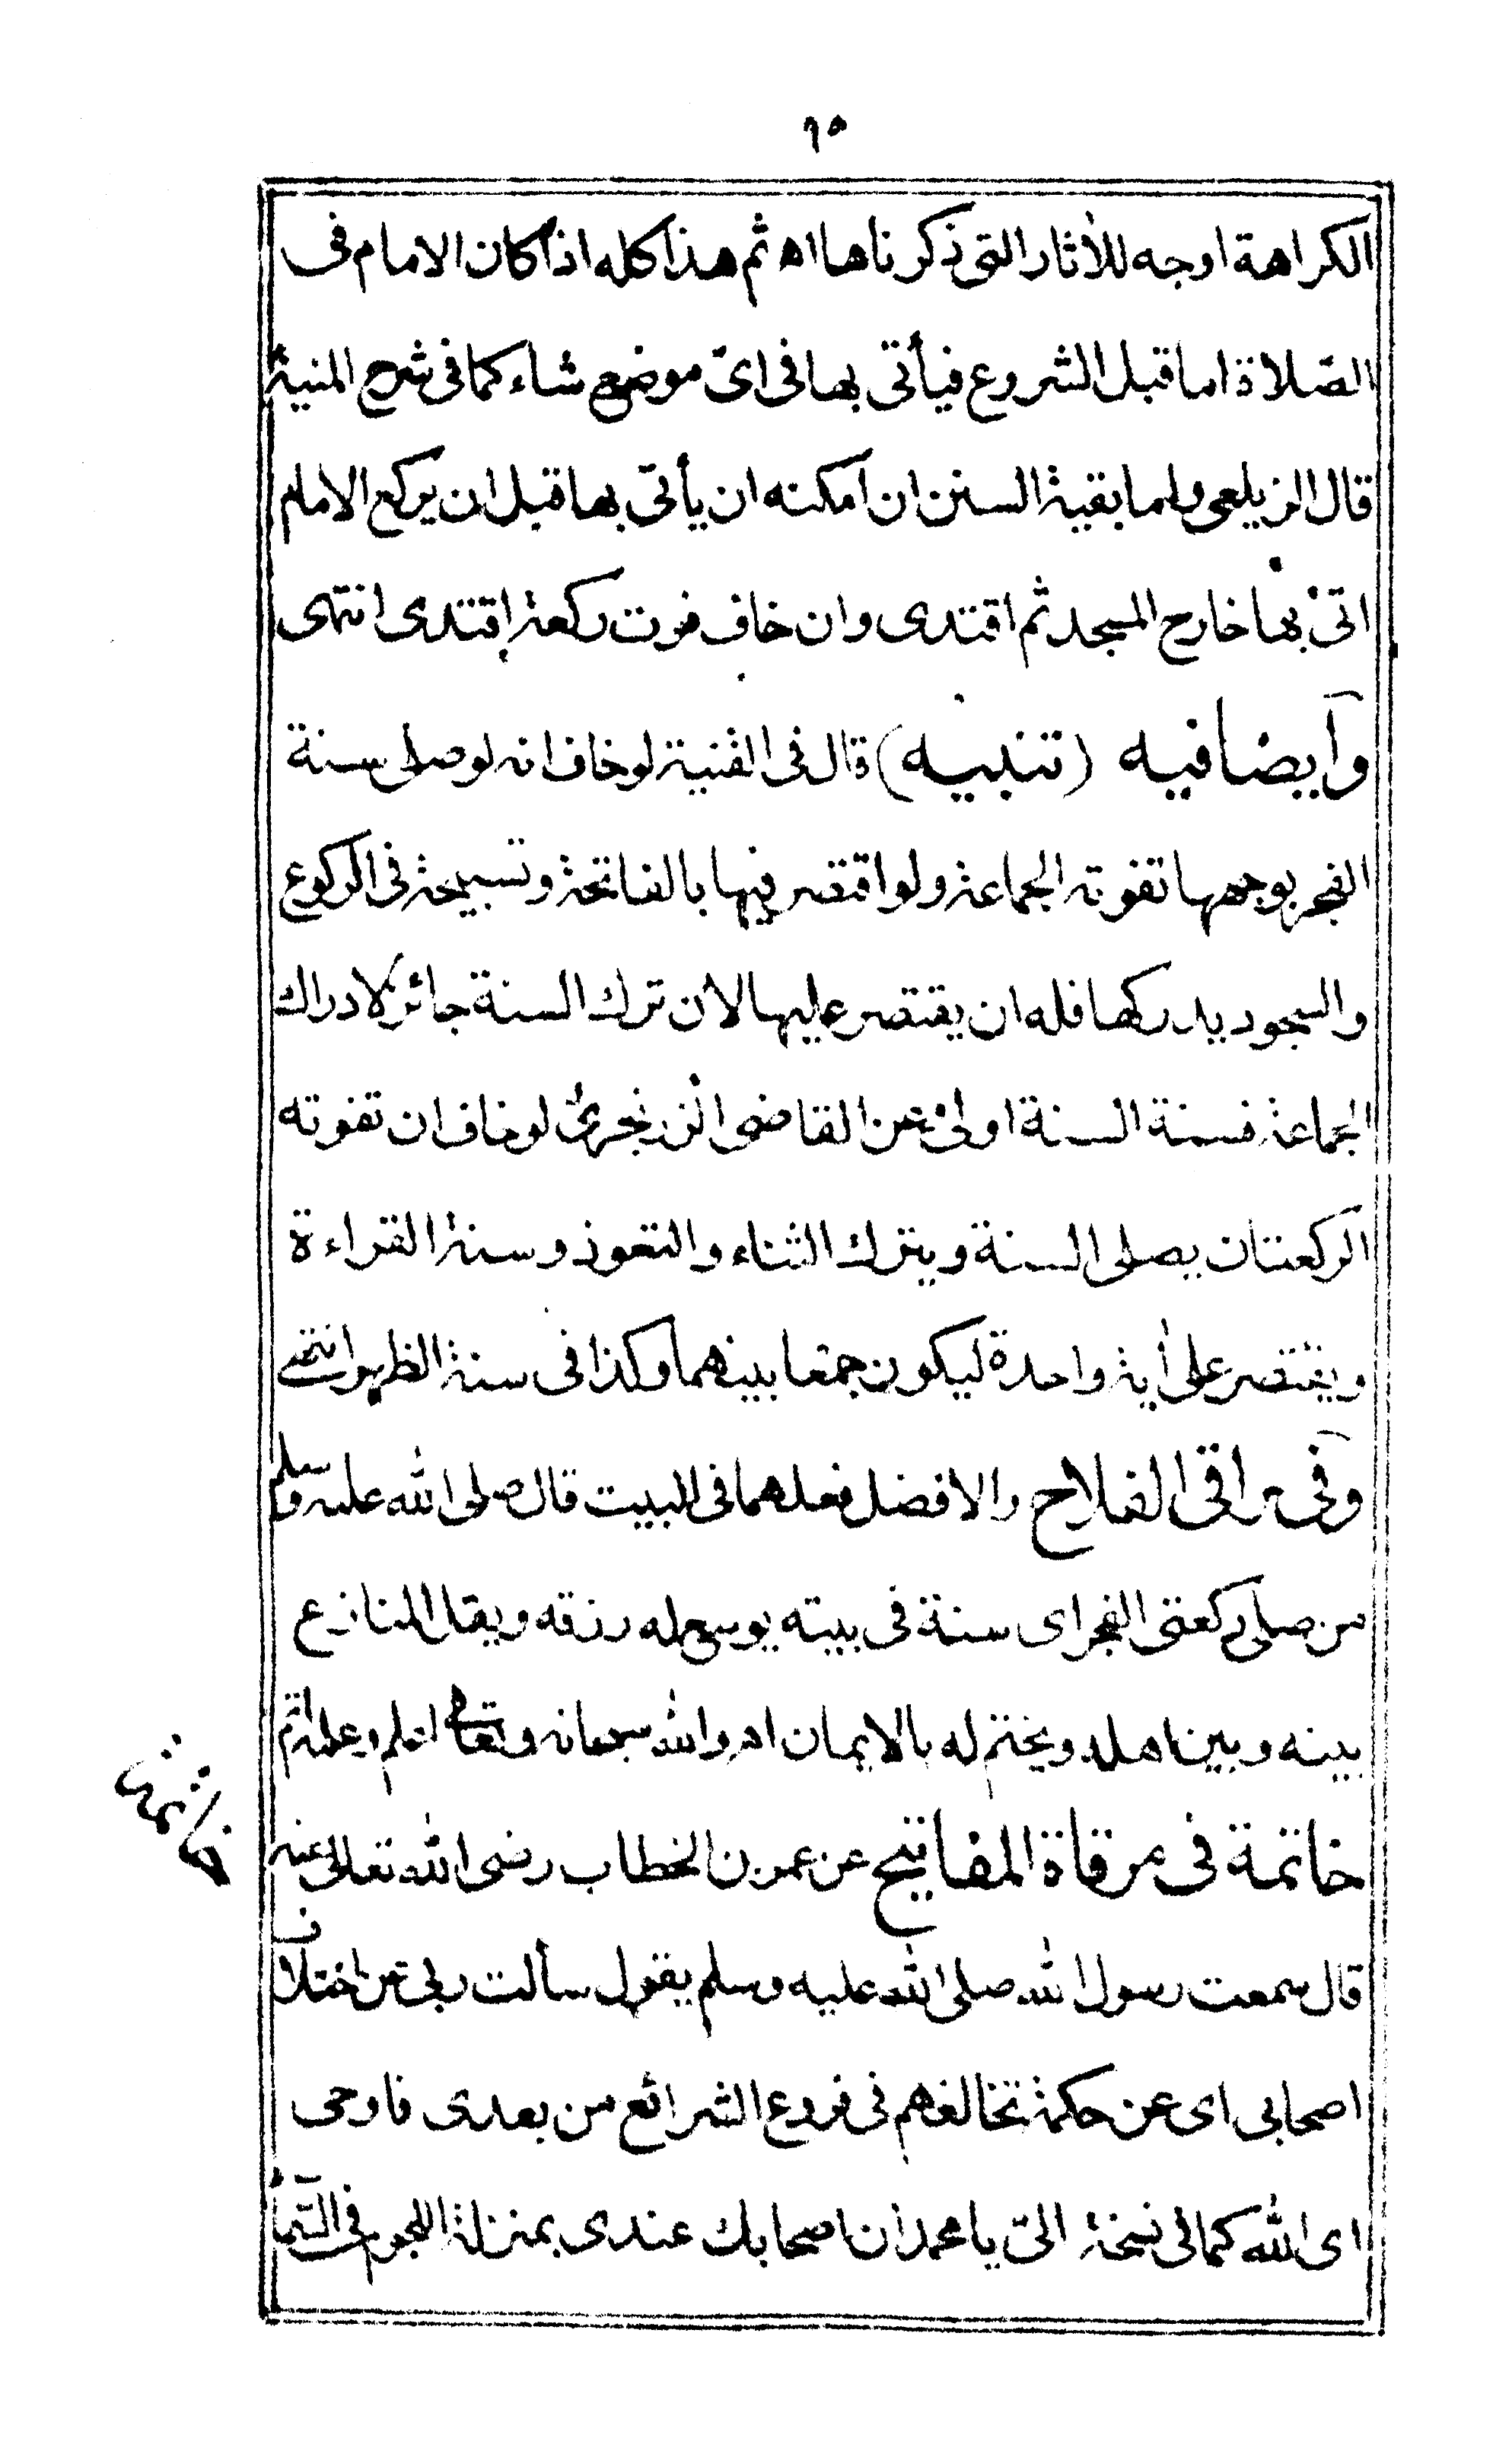 ٦٥
الكراهة اوجه للأثار التى ذكرناها اه ثم هذا كله اذا كان الامام فى
الصّلاة اما قبل الشروع فيأتى بها فى اىّ موضع شاء كما فى شرح المنية
قال الزيلعى واما بقية السنن ان امكنه ان يأتى بها قبل ان يركع الامام
اتى بها خارج المسجد ثم اقتدى وان خاف فوت ركعة اقتدى انتهى
وأيضا فيه (تنبيه) قال فى القنية لو خاف انه لو صلى سنة
الفجر بوجهها تفوته الجماعة ولو اقتصر فيها بالفاتحة وتسبيحة فى الركوع
والسجود يدركها فله ان يقتصر عليها لان ترك السنة جائز لادراك
الجماعة فسنة السنة اولى عن القاضى الزرنجرى لو خاف ان تفوته
الركعتان يصلى السنة ويترك الثناء والتعوذ وسنة القراءة
ويقتصر على أية واحدة ليكون جمعا بينهما وكذا فى سنة الظهر انتهى
وفى مراقى الفلاح والافضل فعلهما فى البيت قال صلى الله عليه وسلم
من صلى ركعتى الفجر اى سنة فى بيته يوسع له رزقه ويقل المنازع
بينه وبين اهله ويختم له بالايمان اه والله سبحانه وتعالى اعلم وعلمه اتم
خاتمة فى مرقاة المفاتيح عن عمر بن الخطاب رضى الله تعالى عنه
قال سمعت رسول الله صلى الله عليه وسلم يقول سألت ربى عن اختلاف
اصحابى اى عن حكمة تخالفهم فى فروع الشرائع من بعدى فاوحى
اى الله كما فى نسخة الىّ يا محمد ان اصحابك عندى بمنزلة النجوم فى السّمأ